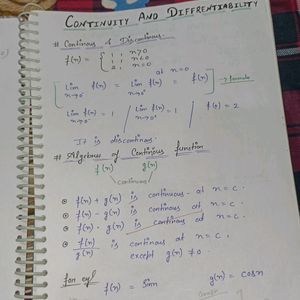 CONTINUITY AND DIFFERENTIABILITY
# Continous & Discontinous.
f(x) = { 1, x>0
1, x<0
2, x=0
at x=0.
[ lim x→0⁻ f(x) = lim x→0⁺ f(x) = f(x) ] → formula
lim x→0⁻ f(x) = 1 / lim x→0⁺ f(x) = 1 / f(0) = 2
It is discontinous.
# Algebra of Continous function
f(x) g(x)
continous
f(x) + g(x) is continuous at x = c.
f(x) - g(x) is continous at x = c.
f(x) . g(x) is continous at x = c.
f(x)/g(x) is continous at x = c,
except g(x) ≠ 0.
for eg/ f(x) = sinx g(x) = cosx